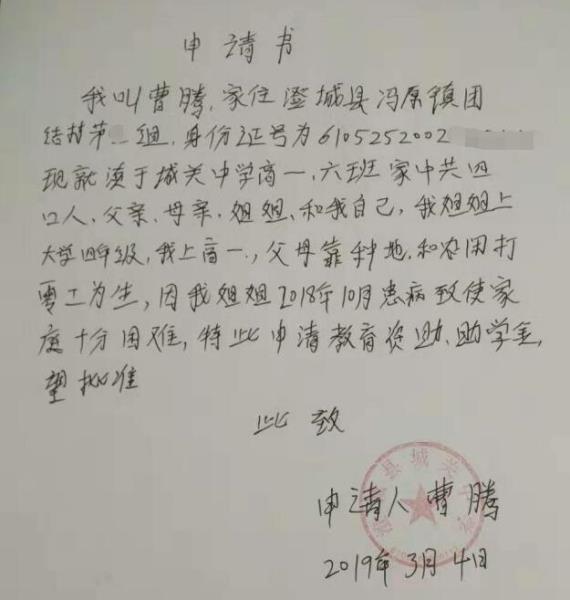 申请书
我叫曹腾,家住澄城县冯原镇团
结村第 组,身份证号为6105252002
现就读于城关中学高一、六班家中共四
口人、父亲、母亲、姐姐、和我自己,我姐姐上
大学四年级,我上高一,父母靠种地、和农闲打
零工为生,因我姐姐2018年10月患病致使家
庭十分困难,特此申请教育资助、助学金,
望批准
此致
申请人 曹腾
2019年3月4日
县城关中